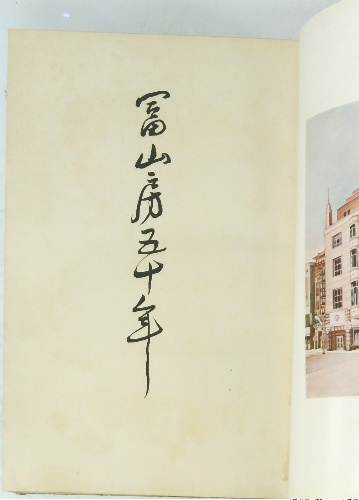 冨山房五十年